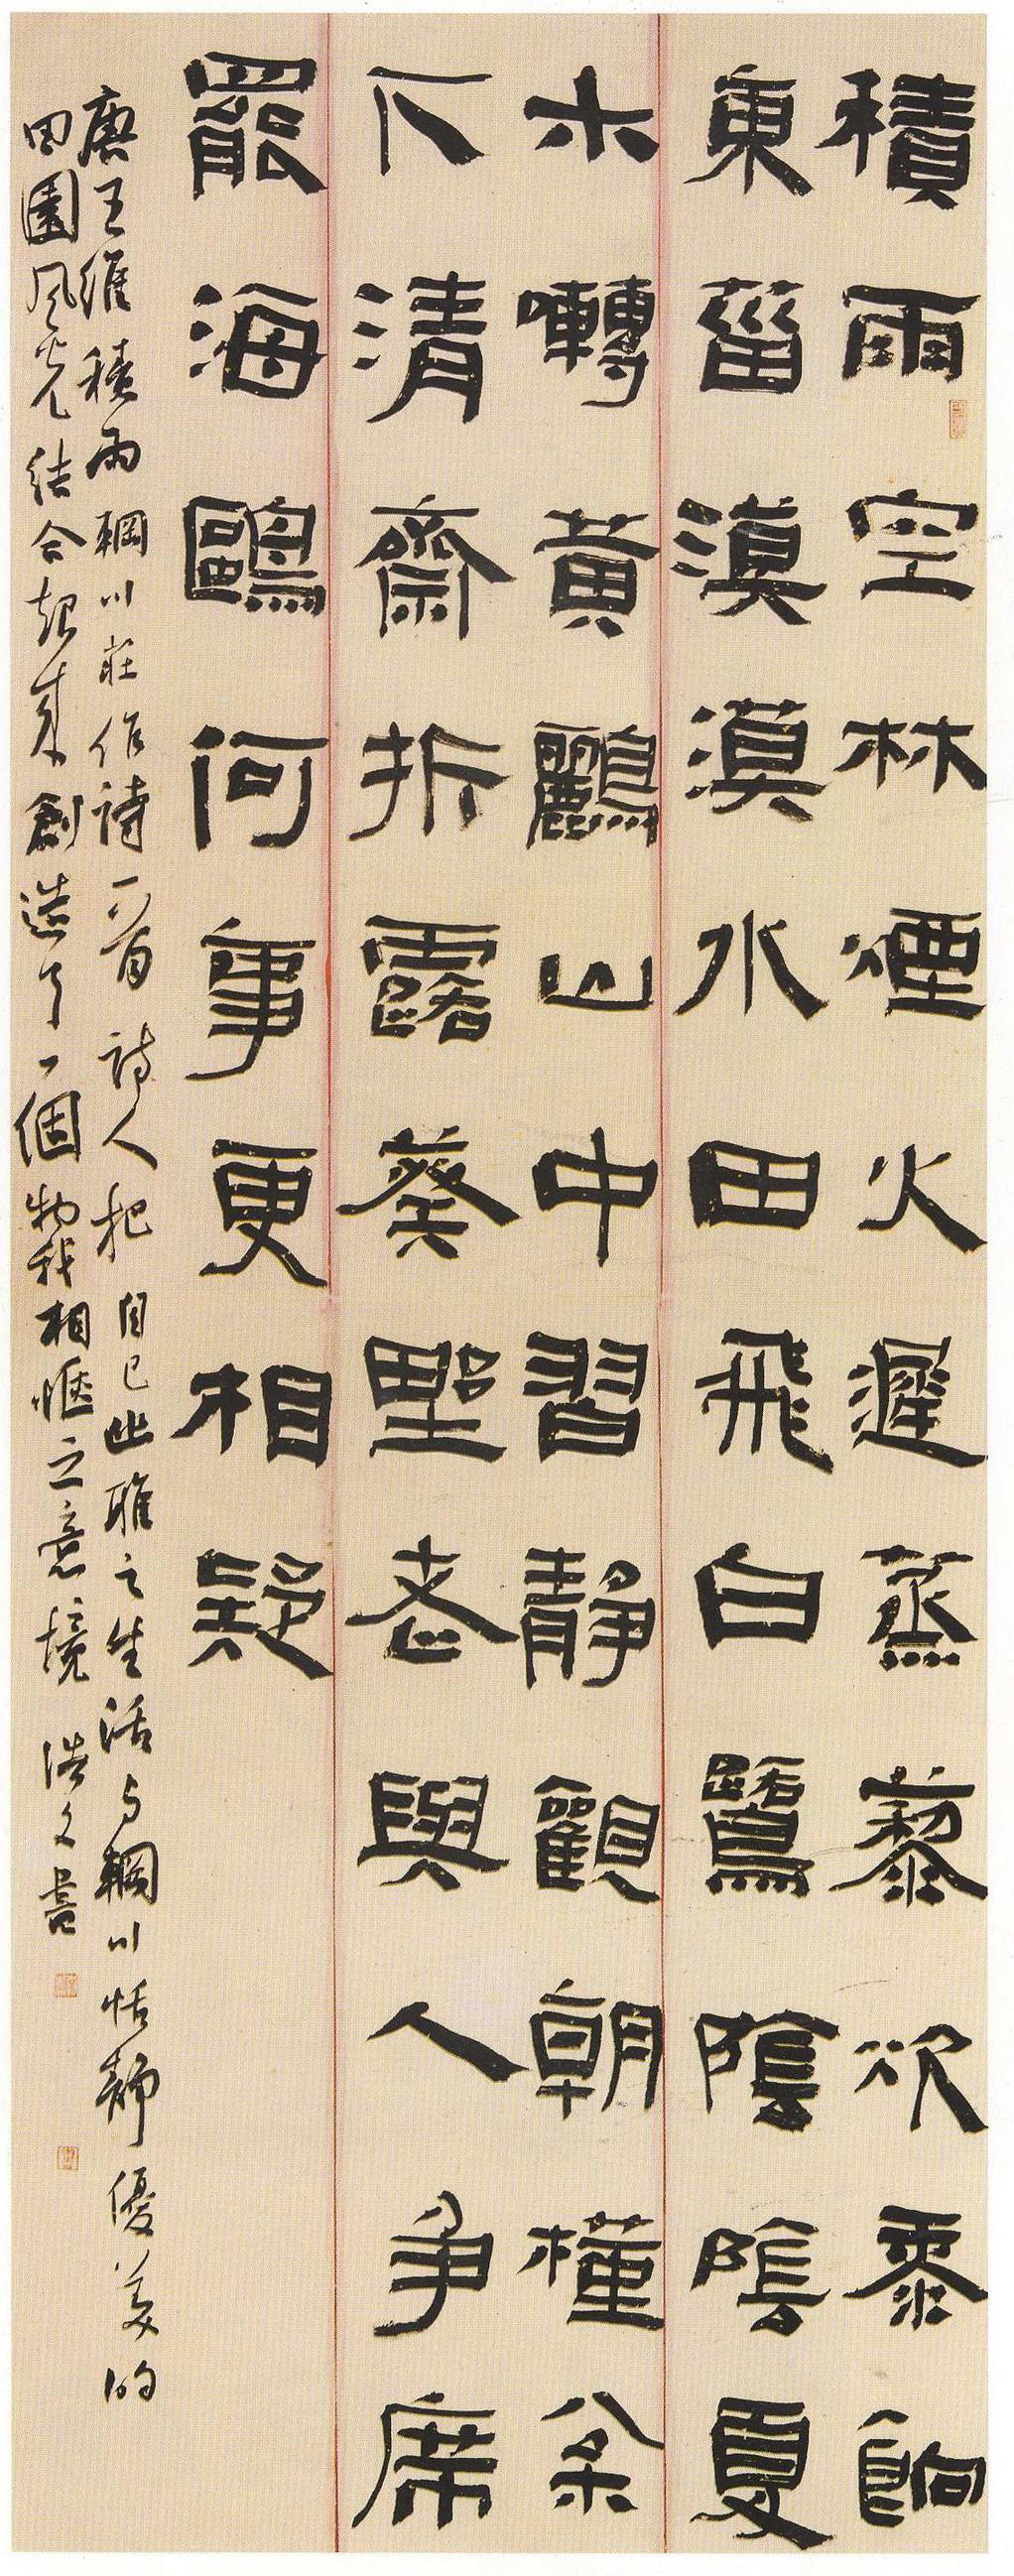 積雨空林煙火遲蒸藜炊黍餉
東菑漠漠水田飛白鷺陰陰夏
木囀黃鸝山中習靜觀朝槿松
下清齋折露葵野老與人爭席
罷海鷗何事更相疑
唐王維積雨輞川莊作詩一首 詩人把自己幽雅之生活与輞川恬静優美的
田園风光结合起来創造了一個物我相惬之意境 浩文書